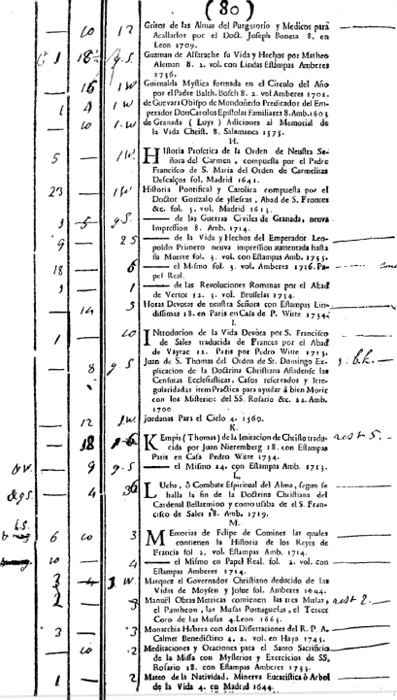 (80)
— 10 12 Gritos de las Almas del Purgatorio y Medicos para
Acallarlos por el Doct. Joseph Boneta 8. en
Leon 1709.
1 18 g.S. Guzman de Alfarache su Vida y Hechos por Matheo
Aleman 8. 2. vol. con Lindas Estampas Amberes
1736.
— 16 1 W Guirnalda Mystica formada en el Circulo del Año
por el Padre Balth. Bosch 8. 2 vol Amberes 1701.
1 4 1 W de Guevara Obispo de Mondoñedo Predicador del Em-
perador Don Carolos Epistolas Familiares 8. Amb. 1603
— 10 1.W de Granada (Luys) Adiciones al Memorial de
la Vida Christ. 8. Salamanca 1575.
H.
5 — 1 W. Historia Profetica de la Orden de Nuestra Se-
ñora del Carmen, compuesta por el Padre
Francisco de S. Maria del Orden de Carmelitas
Descalços fol. Madrid 1641.
23 — 1 W Historia Pontifical y Catolica compuesta por el
Doctor Gonzalo de yllescas, Abad de S. Frontes
&c. fol. 5. vol. Madrid 1613.
g.S. — de las Guerras Civiles de Granada, nueva
Impression 8. Amb. 1714.
9 — 25 — de la Vida y Hechos del Emperador Leo-
poldo Primero nueva impression aumentada hasta
su Muerte fol. 3. vol. con Estampas Amb. 1735.
18 — 6 — el Mismo fol. 3. vol. Amberes 1716. Pa-
pel Real.
— 1 — de las Revoluciones Romanas por el Abad
de Vertot 12. 3. vol. Bruselas 1734.
— 14 3 Horas Devotas de nuestra Señora con Estampas Lin-
dissimas 18. en Paris en Casa de P. Witte 1734.
I.
1 — 10 Introducion de la Vida Devota por S. Francisco
de Sales traducida de Frances por el Abad
de Vayrac 12. Paris por Pedro Witte 1713.
— 8 g.S Juan de S. Thomas del Orden de St. Domingo Ex-
plicacion de la Doctrina Christiana Añadense las
Censuras Ecclesiasticas, Casos reservados y Irre-
gularidades item Practica para ayudar à bien Morir
con los Misterios del SS. Rosario &c. 12. Amb.
1700.
— 12 1.W. Jordanas Para el Ciclo 4. 1569.
K.
— 18 Kempis (Thomas) de la Imitacion de Christo tradu-
cida por Juan Nieremberg 18. con Estampas
Paris en Casa Pedro Witte 1734.
rest 5.
— 9 g.S — el Mismo 24. con Estampas Amb. 1713.
L.
— 4 36 Lucha, ò Combate Espiritual del Alma, segun se
halla la fin de la Doctrina Christiana del
Cardenal Bellarmino y como usaba de el S. Fran-
cisco de Sales 18. Amb. 1719.
M.
6 10 3 Memorias de Felipe de Comines las quales
contienen la Historia de los Reyes de
Francia fol 2. vol. Estampas Amb. 1714.
10 — 4 — el Mismo en Papel Real. fol. 2. vol. con
Estampas Amberes 1714.
3 W. Marquez el Governador Christiano deducido de las
Vidas de Moysen y Josue fol. Amberes 1694.
2 — 3 Manuel Obras Metricas contienen las tres Musas,
el Pantheon, las Musas Portuguesas, el Tercer
Coro de las Musas 4. Leon 1665.
rest 2.
3 — 3 Monarchia Hebrea con dos Dissertaciones del R. P. A.
Calmet Benedictino 4. 2. vol. en Haya 1745.
— 10 12 Meditaciones y Oraciones para el Santo Sacrificio
de la Missa con Mysterios y Exercicios de SS.
Rosario 18. con Estampas Amberes 1733.
1 — 2 Mateo de la Natividad, Minerva Eucaristica ò Arbol
de la Vida 4. en Madrid 1644.